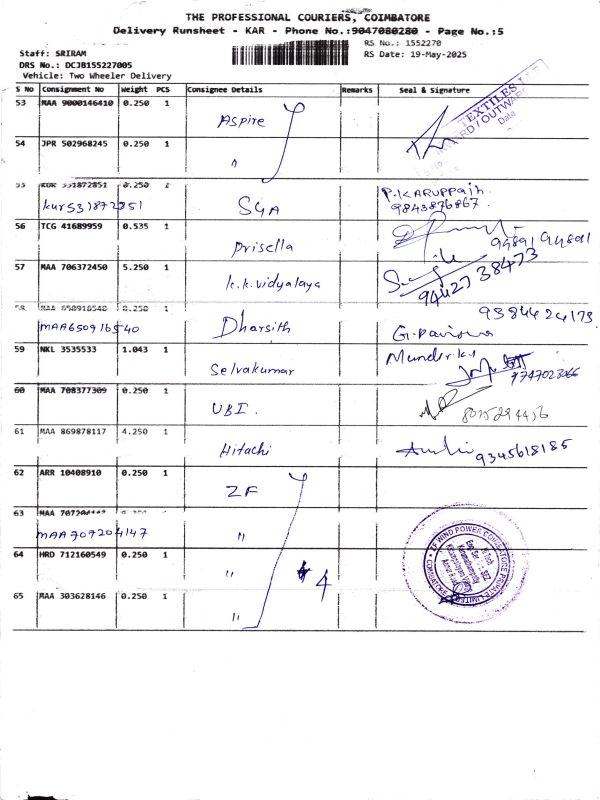 THE PROFESSIONAL COURIERS, COIMBATORE
Delivery Runsheet - KAR - Phone No.:9047080280 - Page No.:5
Staff: SRIRAM
RS No.: 1552270
DRS No.: DCJB155227005
RS Date: 19-May-2025
Vehicle: Two Wheeler Delivery
S No Consignment No Weight PCS Consignee Details Remarks Seal & Signature
53 MAA 9000146410 0.250 1 Aspire
TEXTILES
INWARD / OUTWARD
Date
54 JPR 502968245 0.250 1 "
55 KUR 531872851 0.250 1
kur531872851 SGA P.KARUPPaih
9843876867
56 TCG 41689959 0.535 1 Prisella
57 MAA 706372450 5.250 1 k.k.vidyalaya
9442738473
58 MAA 650916540 0.250 1
9384424173
MAA650916540 Dharsith
59 NKL 3535533 1.043 1 Selvakumar
9747023066
60 MAA 708377309 0.250 1 UBI.
8015294456
61 MAA 869878117 4.250 1 Hitachi 9345618185
62 ARR 10408910 0.250 1 ZF
63 MAA 707204147
MAA707204147 "
64 HRD 712160549 0.250 1 " 4
65 MAA 303628146 0.250 1 "
ZF WIND POWER COIMBATORE PRIVATE LIMITED